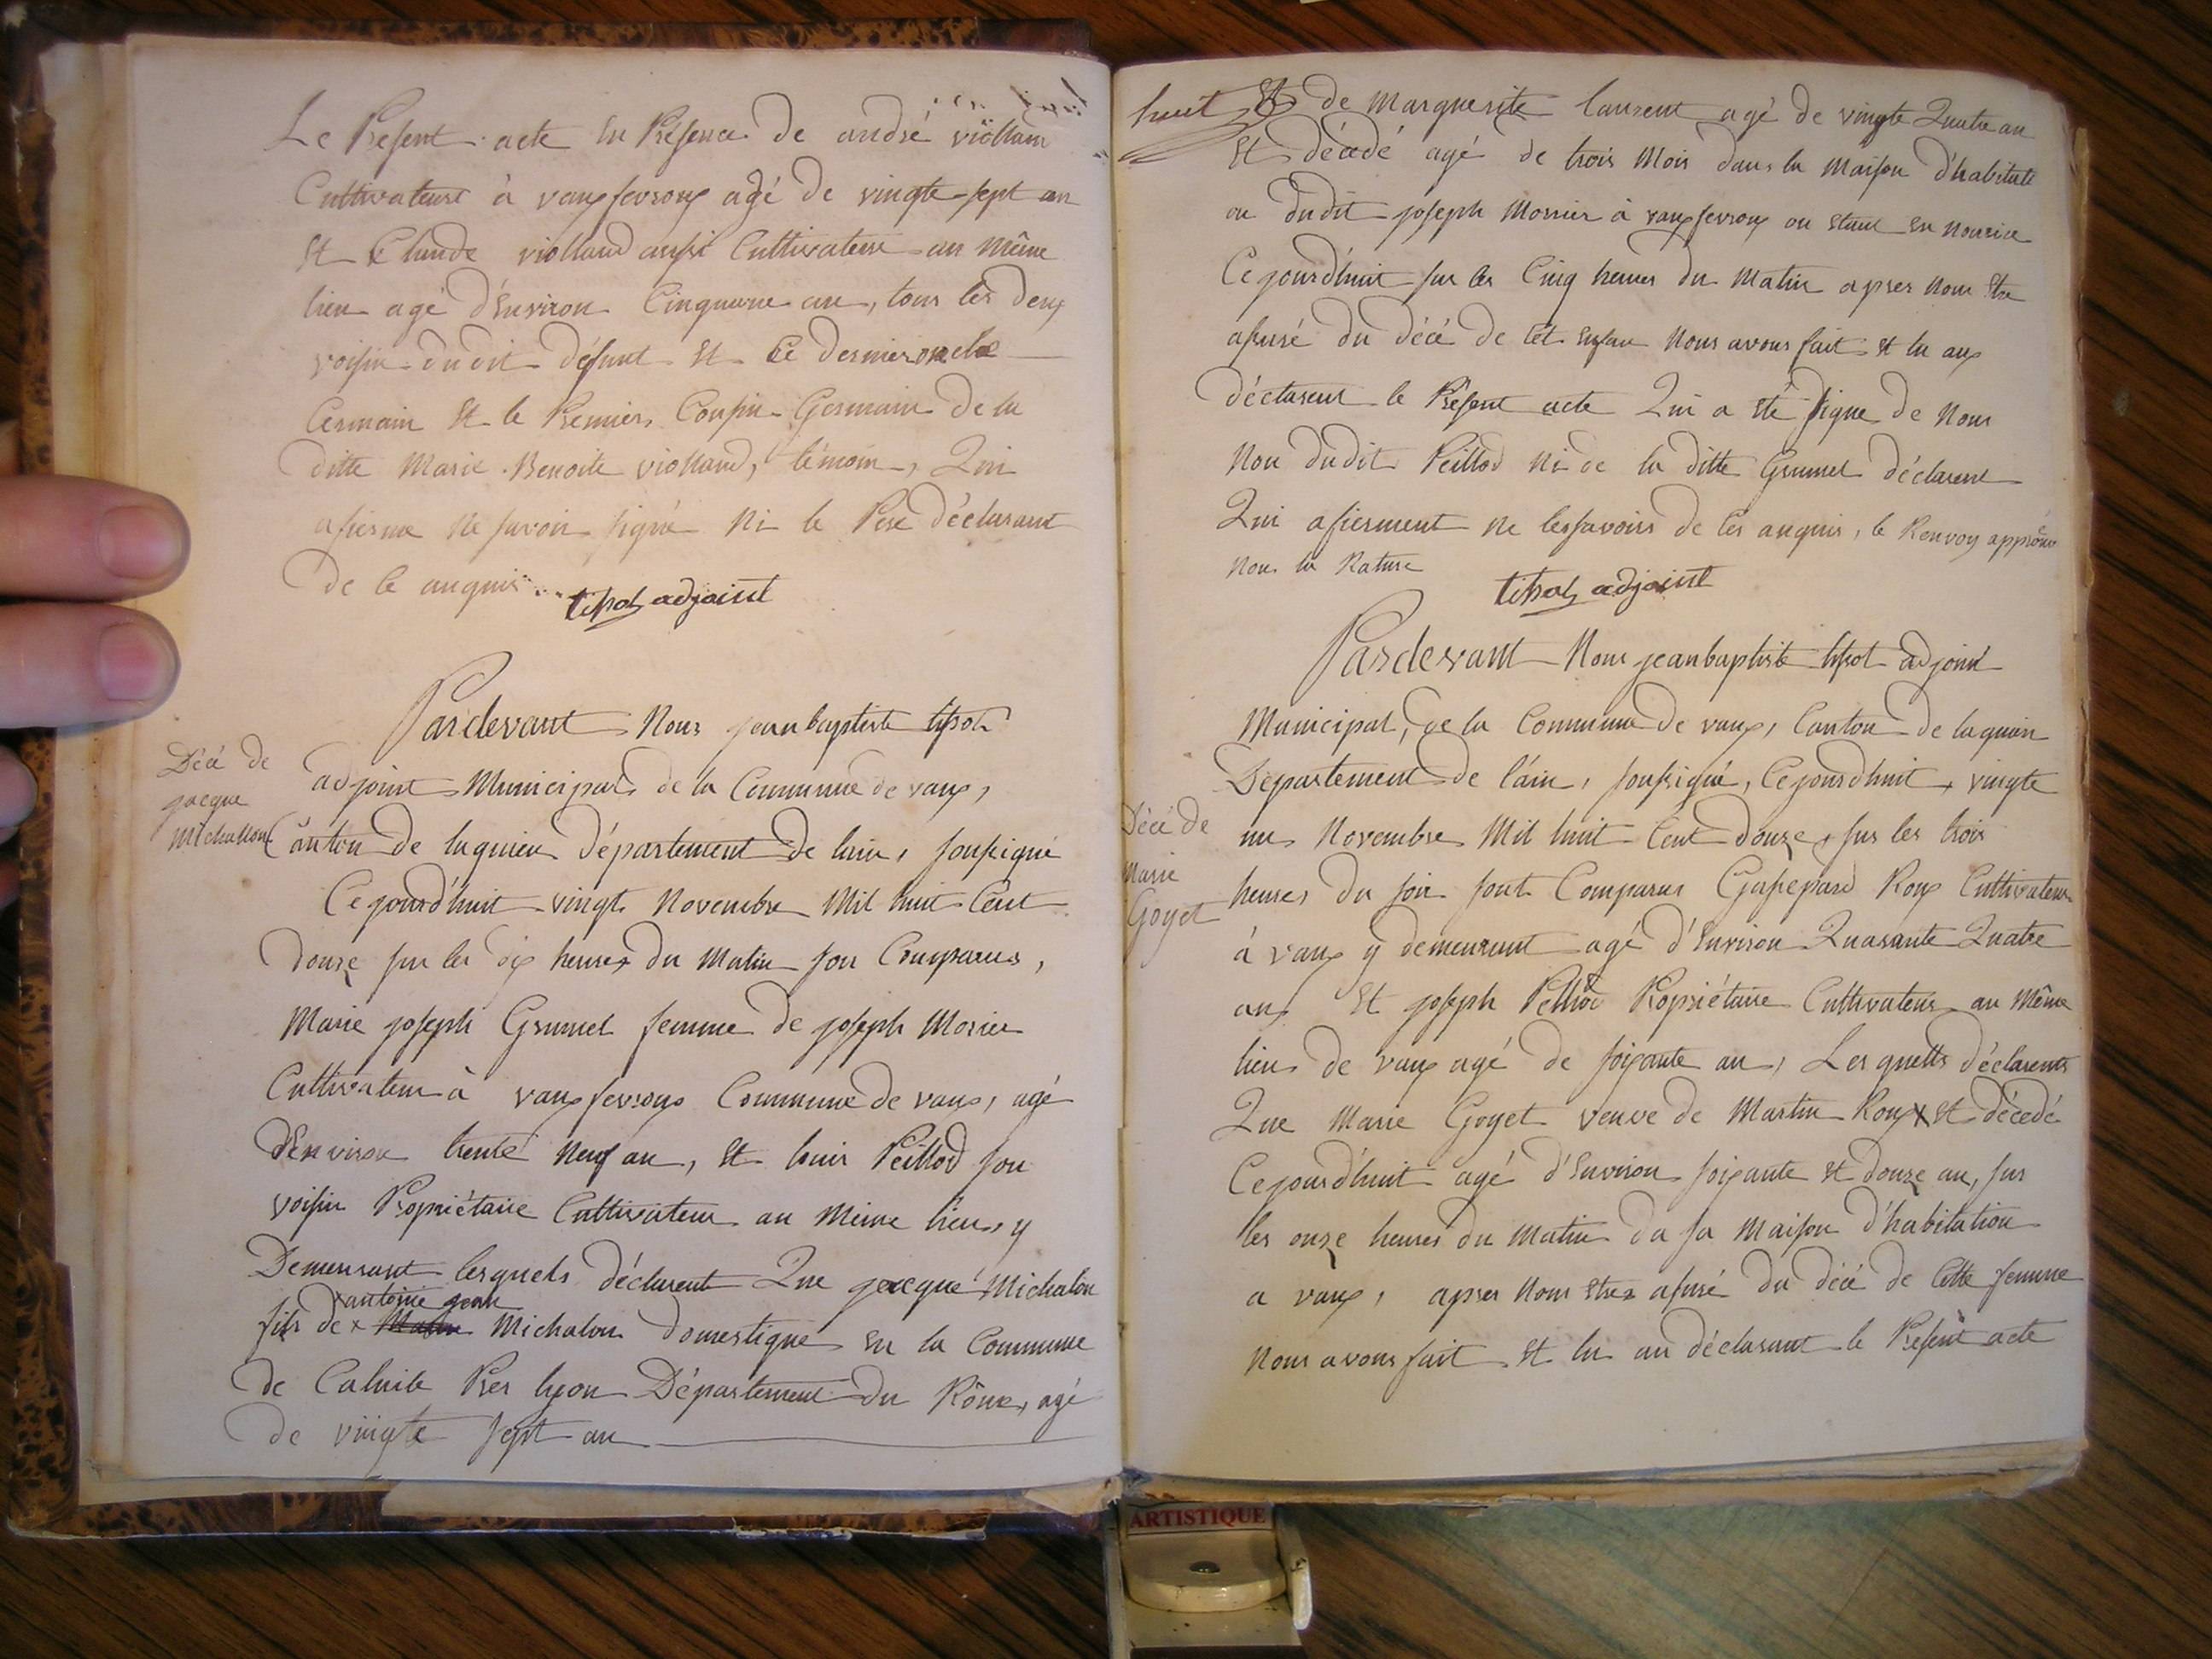 Le Présent acte en Présence de andré violland
Cultivateur à vaux fevroux agé de vingte sept an
et Claude viollaud aussi Cultivateur au même
lieu agé d'Environ Cinquane an, tous les deux
voisin dudit défunt et Ce dernier oncle
Germain et le Premier Cousin Germain de la
ditte Marie Benoite viollaud, témoin, Qui
afierme ne savoir signé Ni le Pere déclarant
de ce anquis tihot adjoint
Pardevant Nous jean baptiste tihot
Décé de
jacque
Michallon
adjoint Municipal de la Commune de vaux,
Canton de lagnieu département de lain, soussigné
Cejourd'huit vingt Novembre Mil huit Cent
douze sur les dix heures du Matin son Comparus,
Marie joseph Grumet femme de joseph Morier
Cultivateur à vaux fevroux Commune de vaux, agé
dEnviron trente neuf an, et louis Peillod son
voisin Propriétaire Cultivateur au même lieu, y
Demeurant lesquels déclarent Que jacque Michalon
x antoine jean
fils de x Michalon domestique en la Commune
de Caluite Pres lyon Département du Rône, agé
de vingte sept an
huit Et de Marguerite laurent agé de vingte Quatre an
Et décédé agé de trois Mois dans la Maison d'habitati
on dudit joseph Morrier à vaux fevroux ou etant en nourice
Cejourd'huit sur les Cinq heures du Matin apres nous Etre
asuré du décé de cet enfan Nous avons fait et lu aux
déclarent le Présent acte Qui a été signe de Nous
Non dudit Peillod Ni de la ditte Grumet déclarent
Qui afierment ne lessavoirs de les anquis, le Renvoy approuv
Nous la Rature
tihot adjoint
Pardevant Nous jeanbaptiste tihot adjoint
Municipal, de la Commune de vaux, Canton de lagnieu
Département de l'ain, soussigné, Cejourd'huit, vingte
Décé de
Marie
Goyet
un Novembre Mil huit Cent douze, sur les trois
heures du soir sont Comparus Gaspard Roux Cultivateur
à vaux y demeurant agé d'Environ Quarante Quatre
an, Et joseph Peillod Propriétaire Cultivateur au Même
lieu de vaux agé de soixante an, Lesquells déclarents
Que Marie Goyet veuve de Martin Roux x et décedé
Cejourd'huit agé d'Environ soixante et douze an, sur
les onze heures du Matin da sa Maison d'habitation
a vaux, apres Nous etres asuré du décé de Cette femme
Nous avons fait et lu au déclarant le Présent acte
ARTISTIQUE